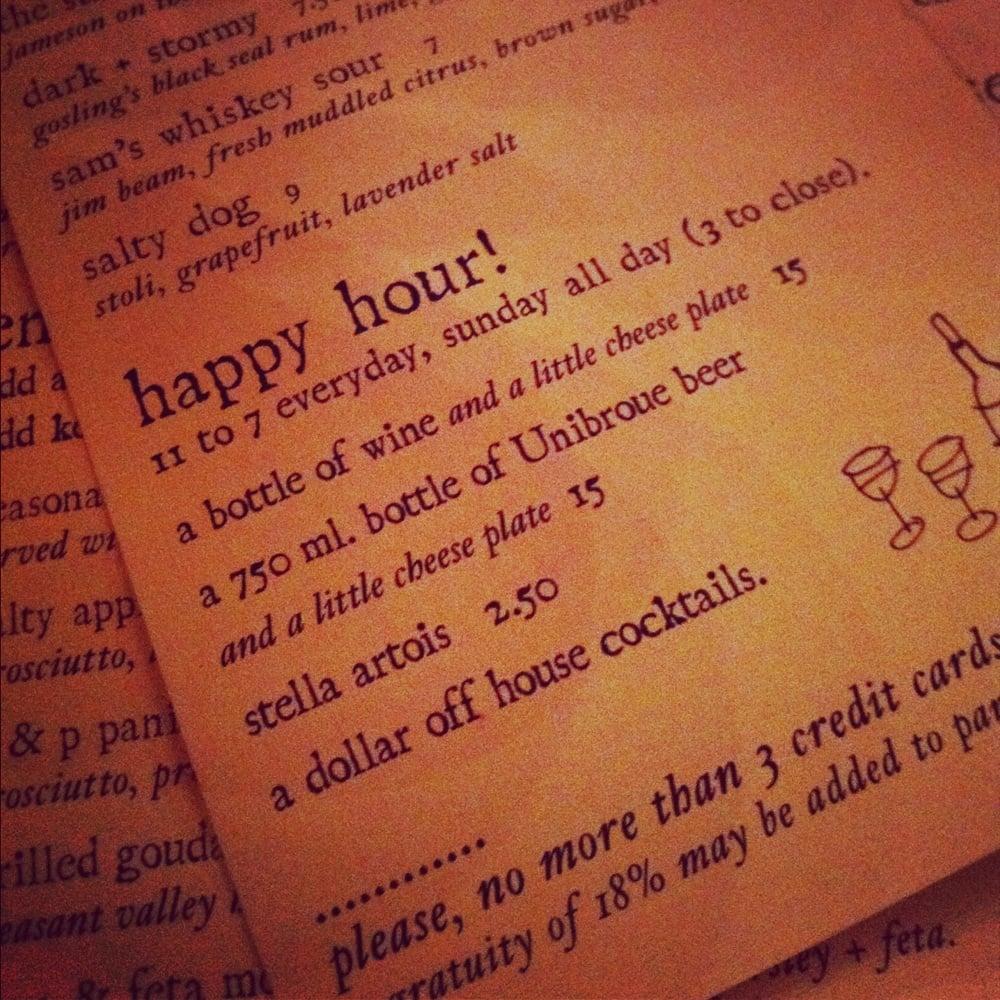 jameson on
dark + stormy
gosling's black seal rum, lime,
sam's whiskey sour 7
jim beam, fresh muddled citrus, brown sugar,
salty dog 9
stoli, grapefruit, lavender salt
happy hour!
11 to 7 everyday, sunday all day (3 to close).
a bottle of wine and a little cheese plate 15
a 750 ml. bottle of Unibroue beer
and a little cheese plate 15
stella artois 2.50
a dollar off house cocktails.
...........
please, no more than 3 credit cards
gratuity of 18% may be added to par
en
dd a
dd
easona
rved wi
lty app
rosciutto,
& p pani
rosciutto, pr
rilled gouda
easant valley
& feta
+ feta.